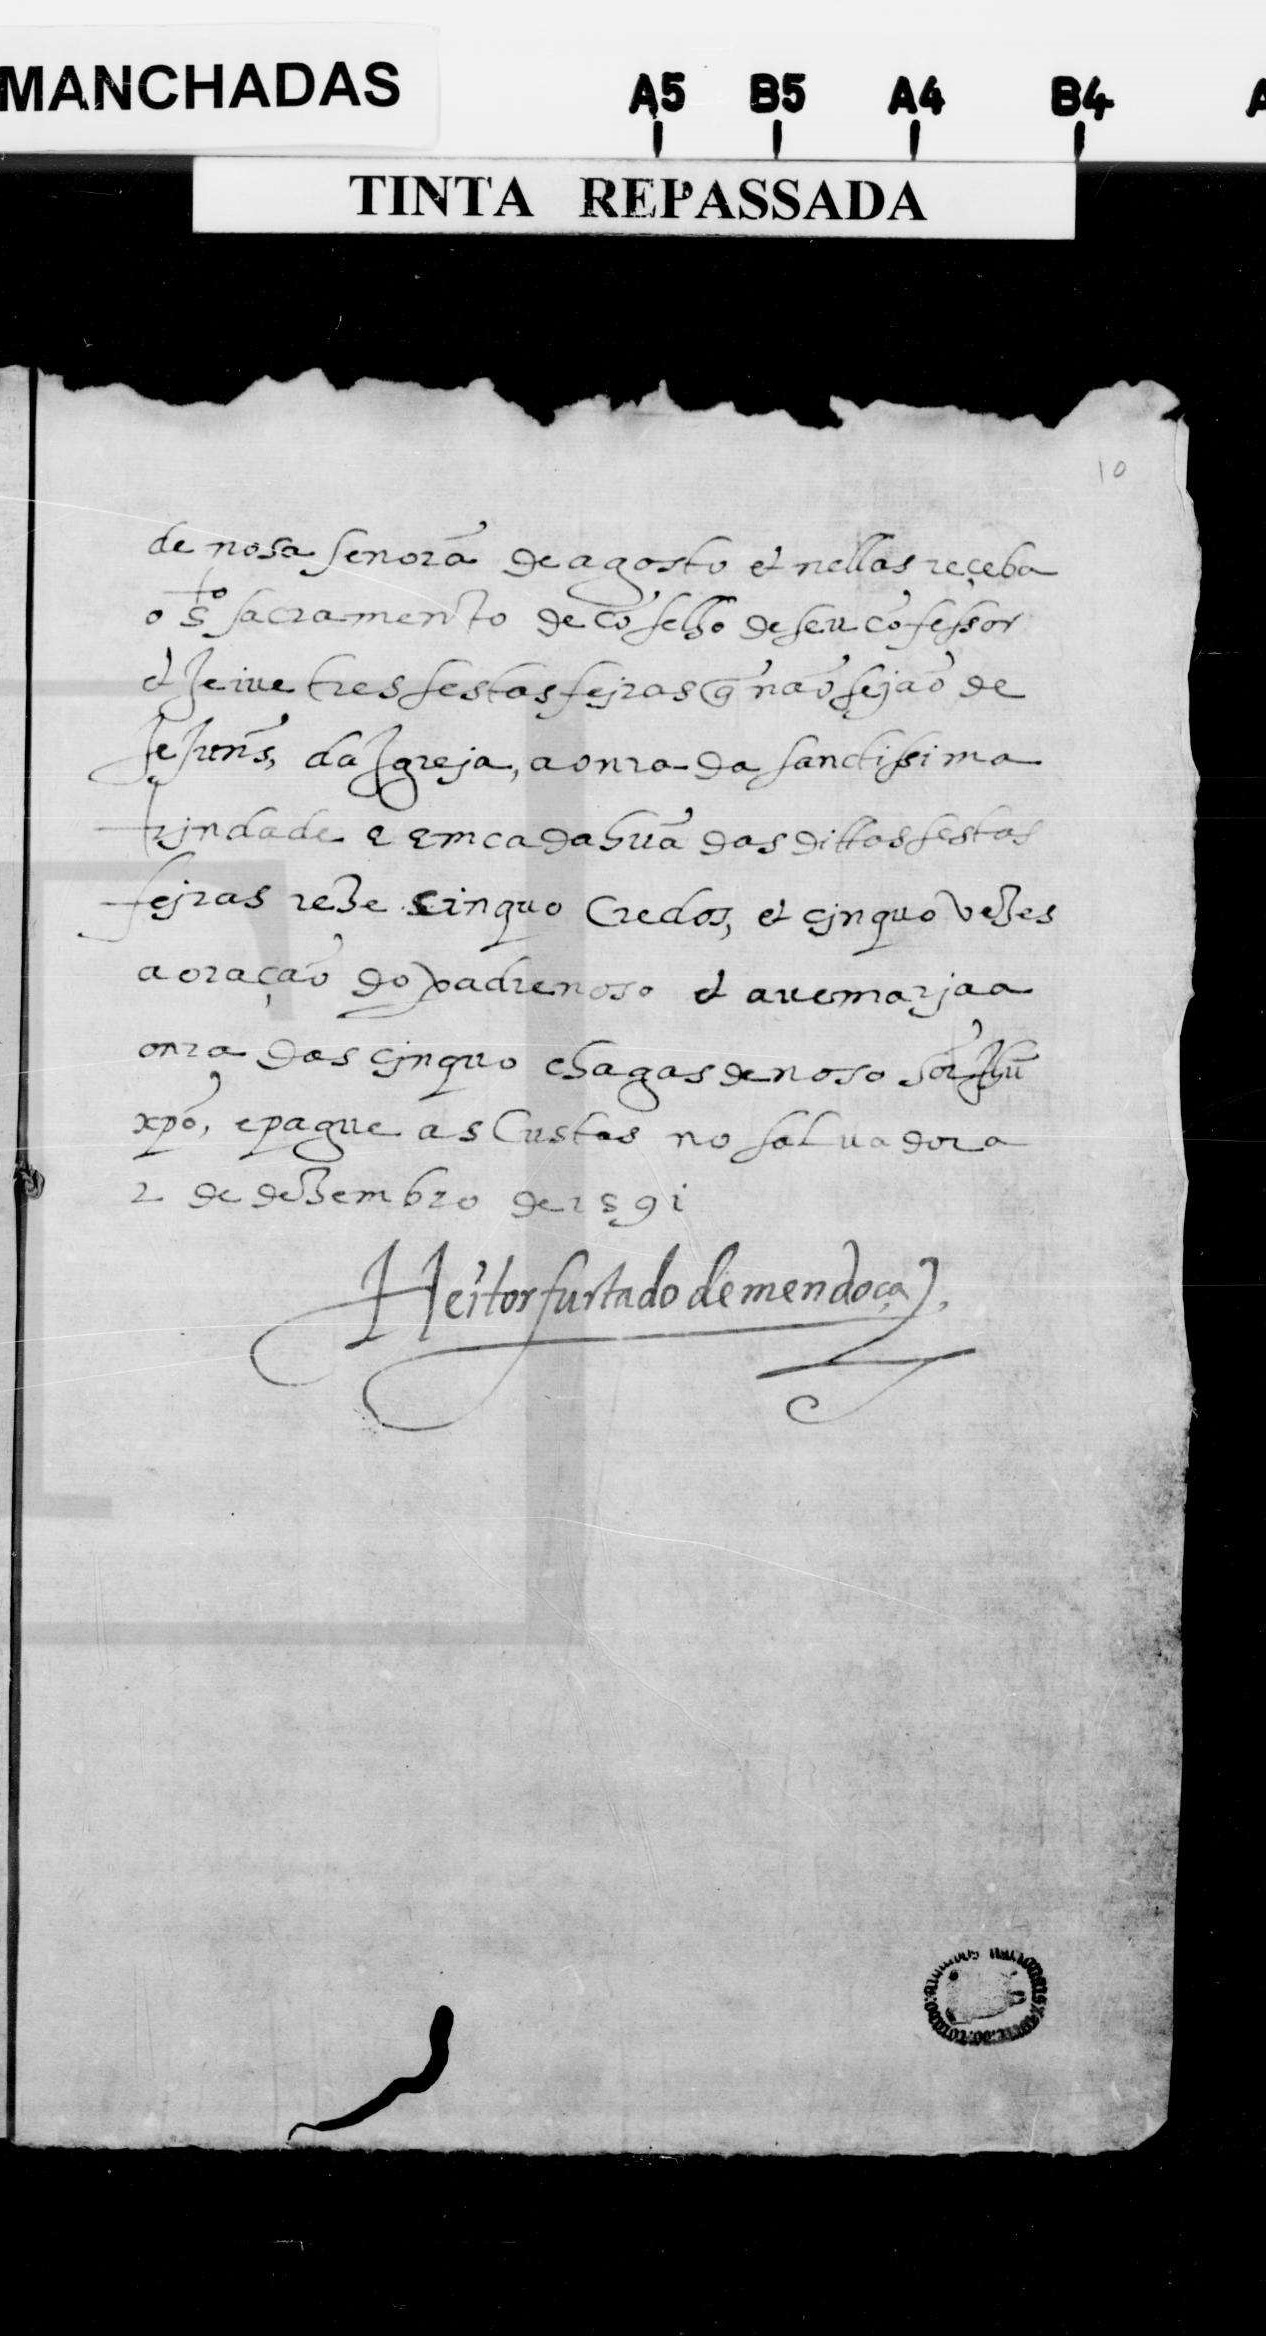 MANCHADAS
A5 B5 A4 B4 A
TINTA REPASSADA
10
de nosa senorã de agosto et nellas reçeba
o s.to sacramento de cõselho de seu cõfessor
et Jeiue tres sestas fejras q̃ não sejão de
JeJuñs, da Igreja, a onra da sanctissima
trjndade e em cada huã das dittas sestas
fejras reze cinquo Credos, et cjnquo vezes
a oração do padrenoso et avemarja a
onra das cjnquo chagas de noso sõr Jhũ
xpõ, e pague as Custas no saluador a
2 de dezembro de 1591
Heitor furtado de mendoça